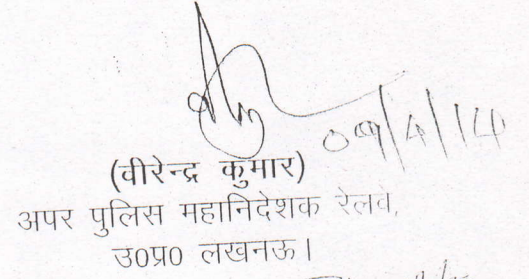 09/4/14
(वीरेन्द्र कुमार)
अपर पुलिस महानिदेशक रेलवे,
उ0प्र0 लखनऊ।